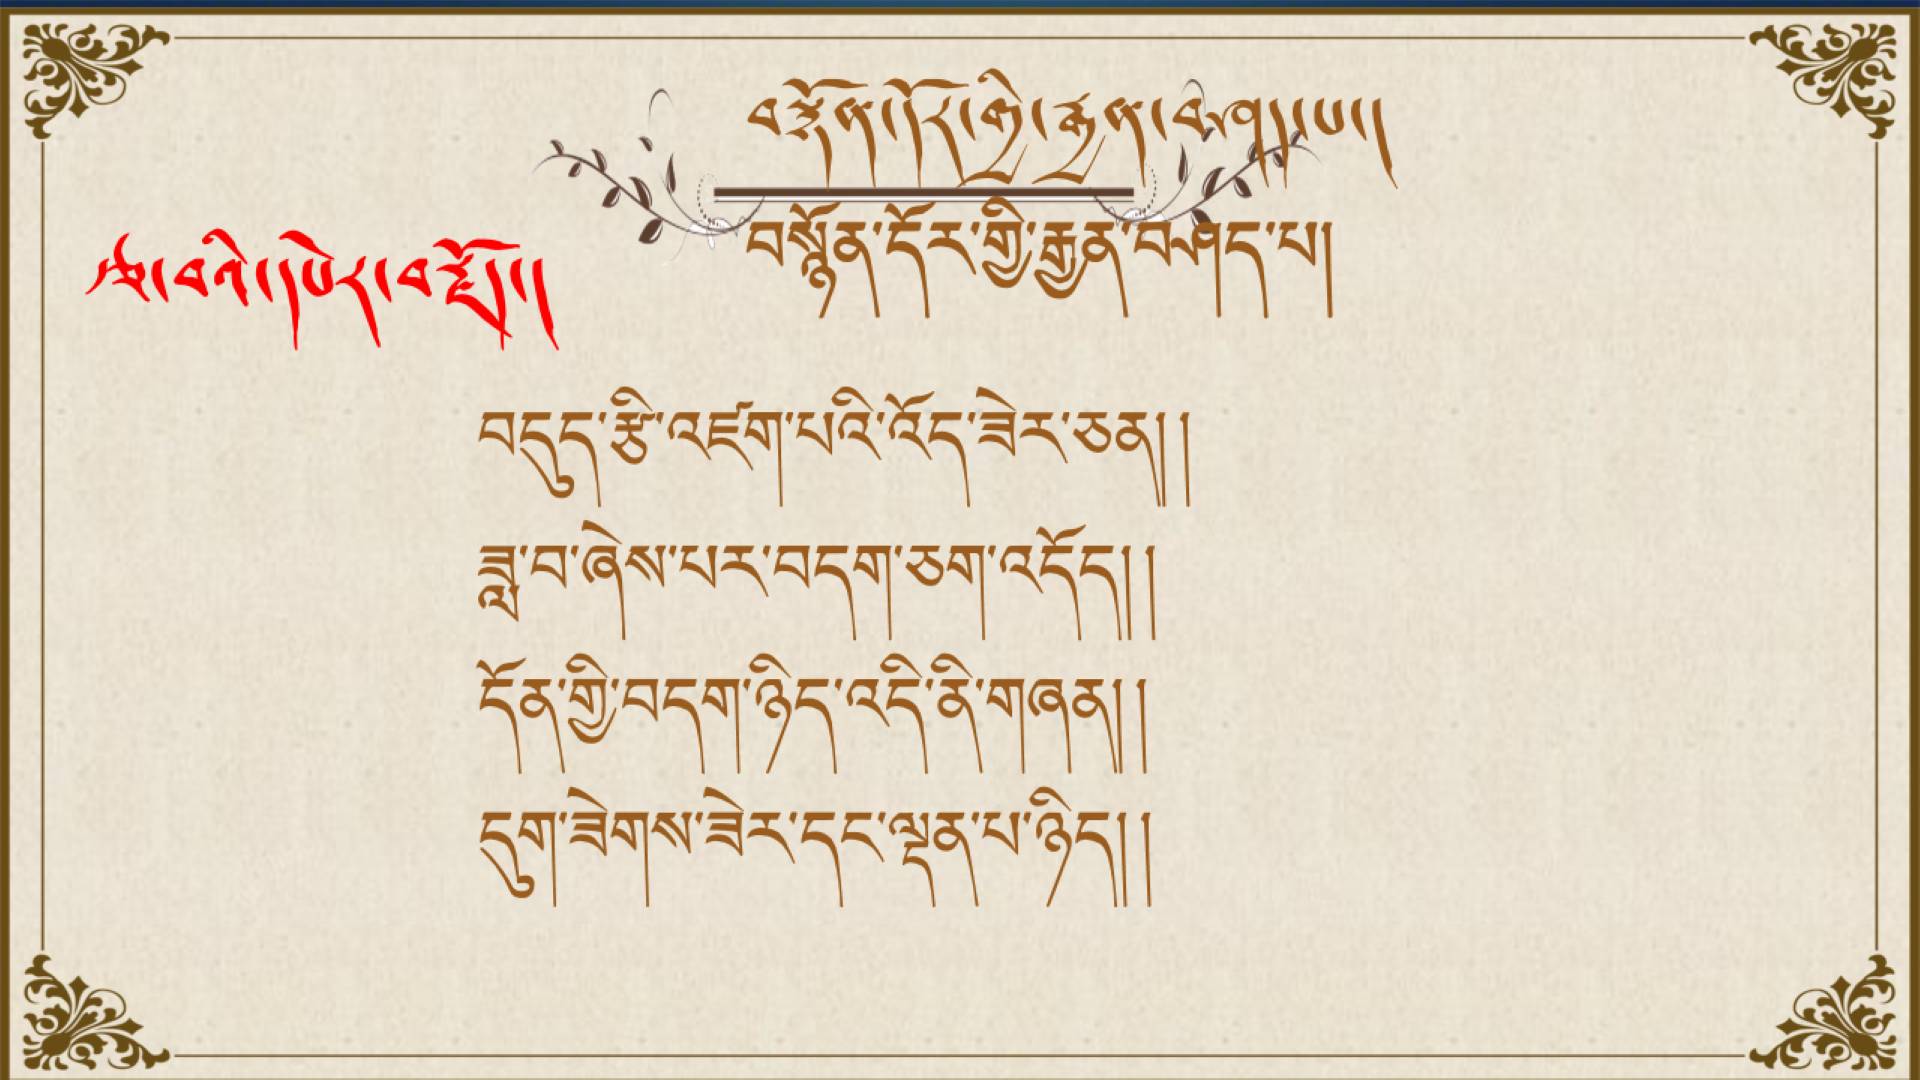 བསྙོན་དོར་གྱི་རྒྱན་བཤད་པ།
བསྙོན་དོར་གྱི་རྒྱན་བཤད་པ།
རྩ་བའི་དཔེར་བརྗོད།
བདུད་རྩི་འཛག་པའི་འོད་ཟེར་ཅན།།
ཟླ་བ་ཞེས་པར་བདག་ཅག་འདོད།།
དོན་གྱི་བདག་ཉིད་འདི་ནི་གཞན།།
དུག་ཟེགས་ཟེར་དང་ལྡན་པ་ཉིད།།